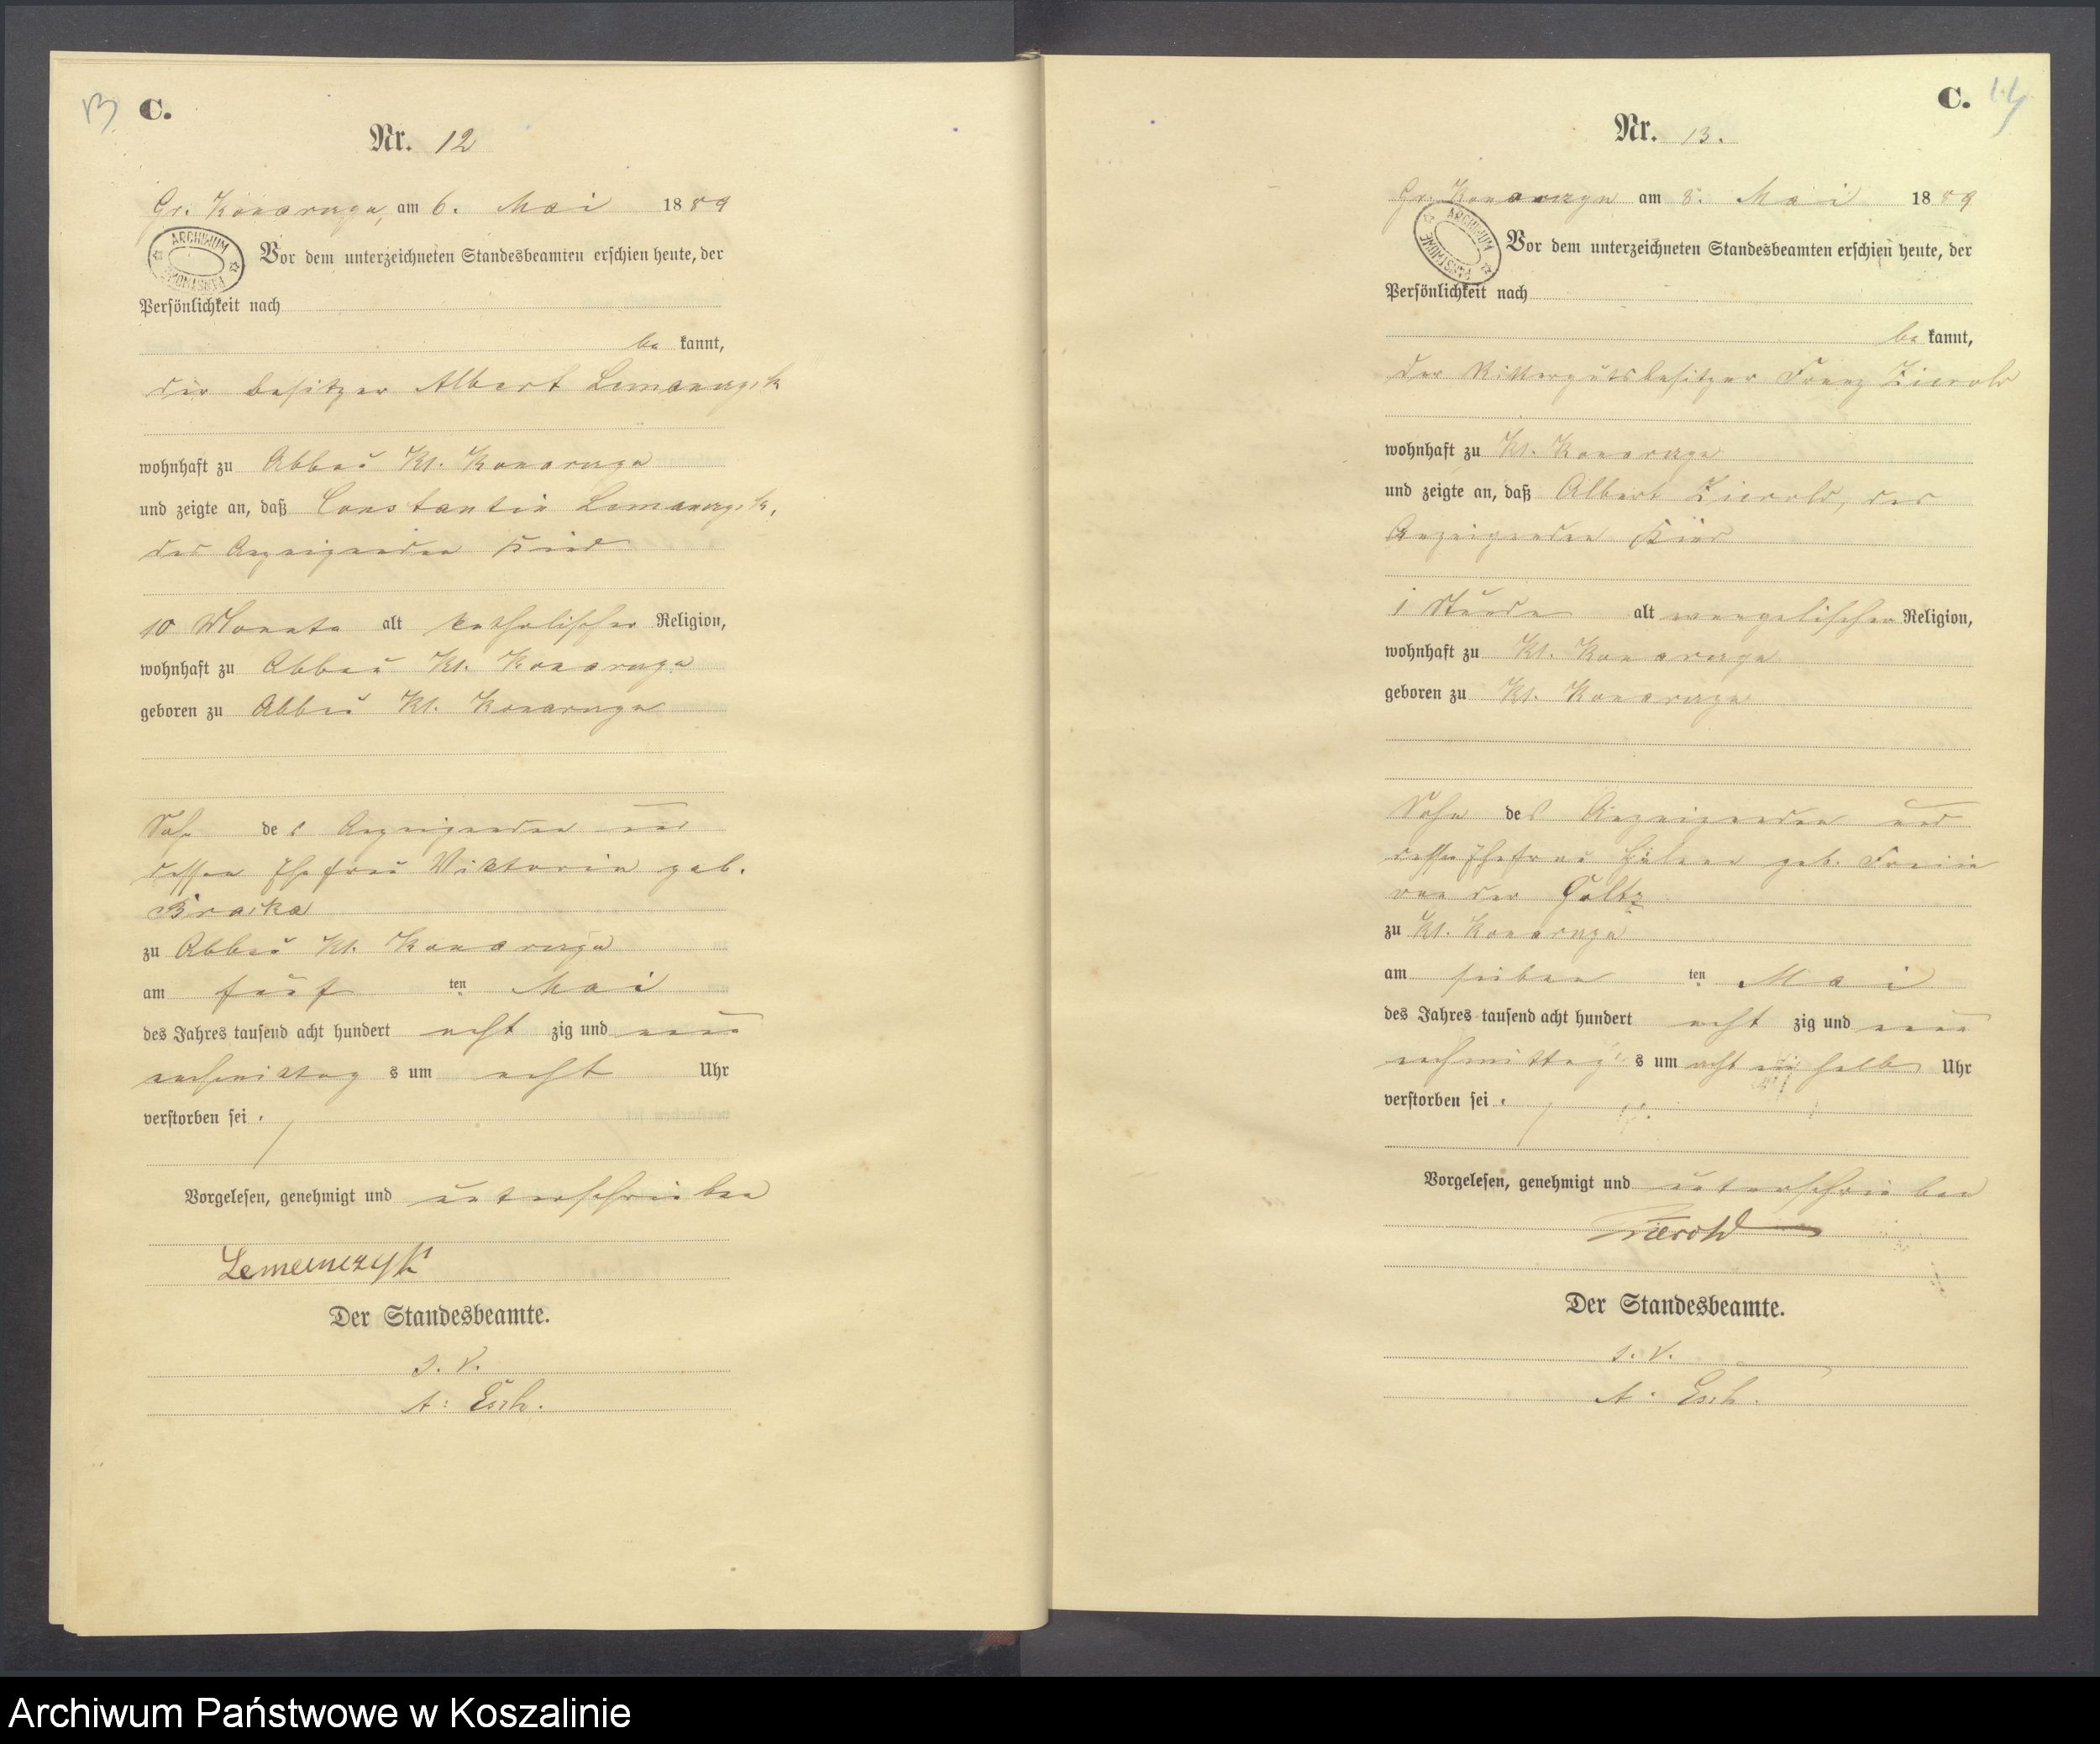 13
C.
Nr. 12
Gr. Konarczyn, am 6. Mai 1889
ARCHIWUM
Vor dem unterzeichneten Standesbeamten erschien heute, der
Persönlichkeit nach
be kannt,
der Besitzer Albert Lemanczyk
wohnhaft zu Abbau Kl. Konarczyn
und zeigte an, daß Constantin Lemanczyk,
des Anzeigenden Kind
10 Monate alt katholischer Religion,
wohnhaft zu Abbau Kl. Konarczyn
geboren zu Abbau Kl. Konarczyn
Sohn des Anzeigenden und
dessen Ehefrau Viktoria geb.
zu Abbau Kl. Konarczyn
am fünf ten Mai
des Jahres tausend acht hundert acht zig und neun
nachmittag s um acht Uhr
verstorben sei.
Vorgelesen, genehmigt und unterschrieben
Lemanczyk
Der Standesbeamte.
J. V.
A. Esch.
C. 14
Nr. 13.
Gr. Konarczyn am 8. Mai 1889
ARCHIWUM
Vor dem unterzeichneten Standesbeamten erschien heute, der
Persönlichkeit nach
be kannt,
der Rittergutsbesitzer Franz Zierold
wohnhaft zu Kl. Konarczyn
und zeigte an, daß Albert Zierold, des
Anzeigenden Kind
1 Stunde alt evangelischer Religion,
wohnhaft zu Kl. Konarczyn
geboren zu Kl. Konarczyn
Sohn des Anzeigenden und
dessen Ehefrau Helene geb. Freiin
von der Goltz
zu Kl. Konarczyn
am sieben ten Mai
des Jahres tausend acht hundert acht zig und neun
nachmittag s um acht ein halb Uhr
verstorben sei.
Vorgelesen, genehmigt und unterschrieben
Zierold
Der Standesbeamte.
J. V.
A. Esch.
Archiwum Państwowe w Koszalinie